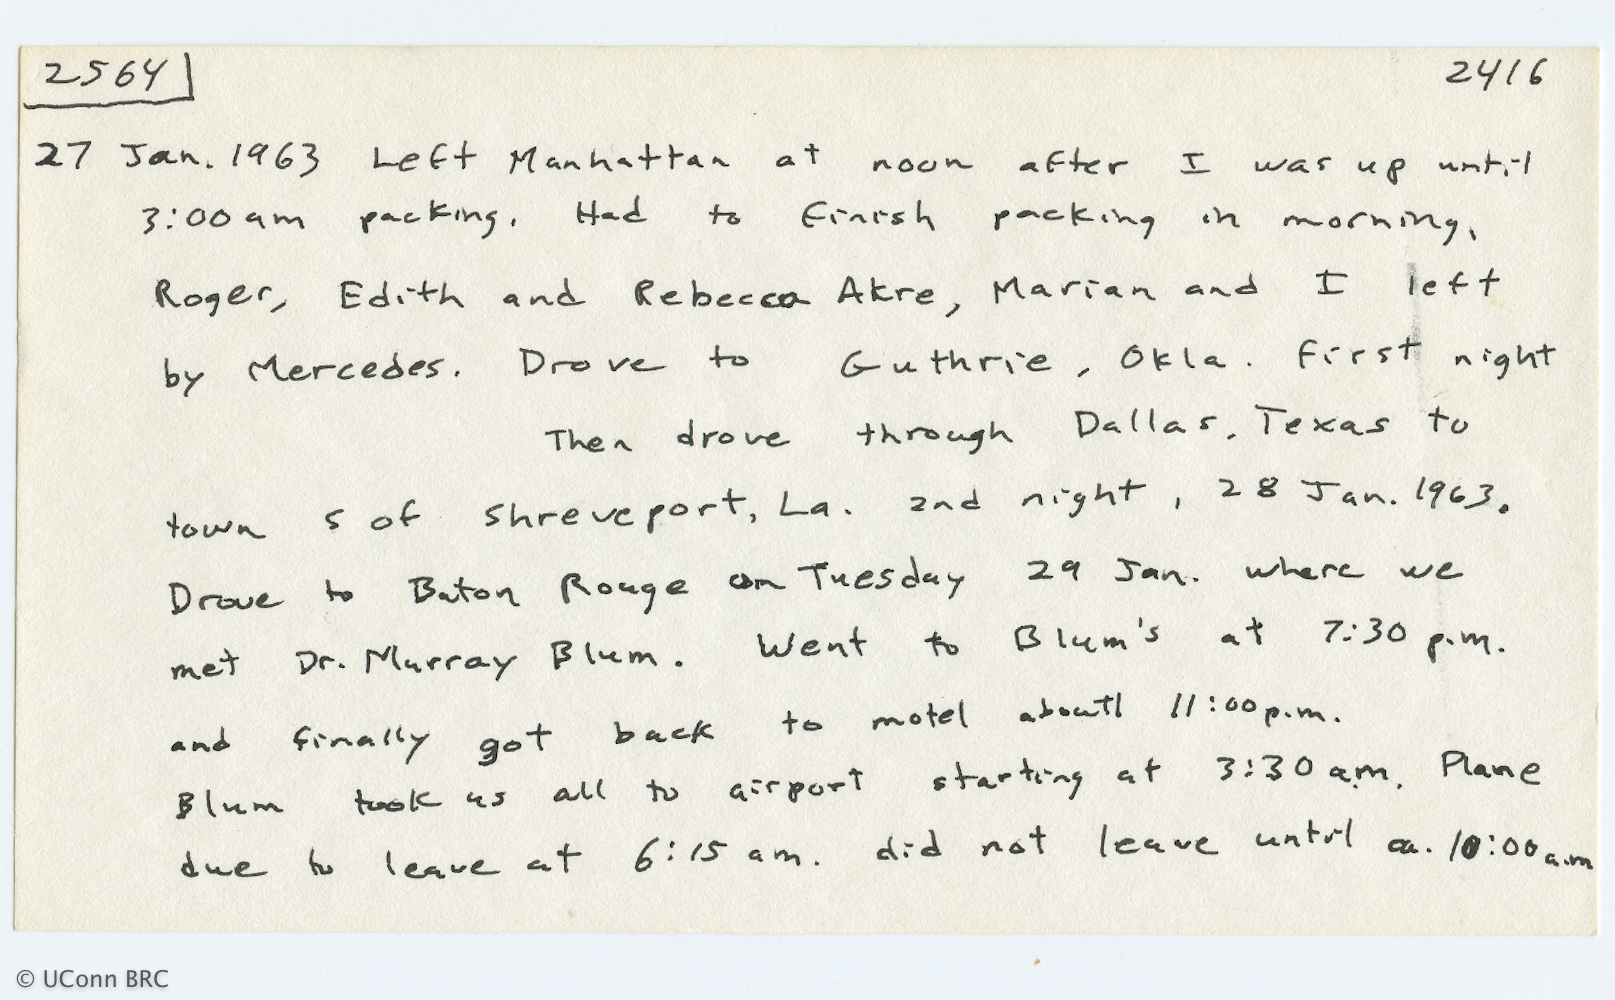 2564 2416
27 Jan. 1963 Left Manhattan at noon after I was up until
3:00 am packing. Had to finish packing in morning.
Roger, Edith and Rebecca Akre, Marian and I left
by Mercedes. Drove to Guthrie, Okla. first night
Then drove through Dallas, Texas to
town S of Shreveport, La. 2nd night, 28 Jan. 1963.
Drove to Baton Rouge on Tuesday 29 Jan. where we
met Dr. Murray Blum. Went to Blum's at 7:30 p.m.
and finally got back to motel about 11:00 p.m.
Blum took us all to airport starting at 3:30 a.m. Plane
due to leave at 6:15 am. did not leave until ca. 10:00 a.m
© UConn BRC